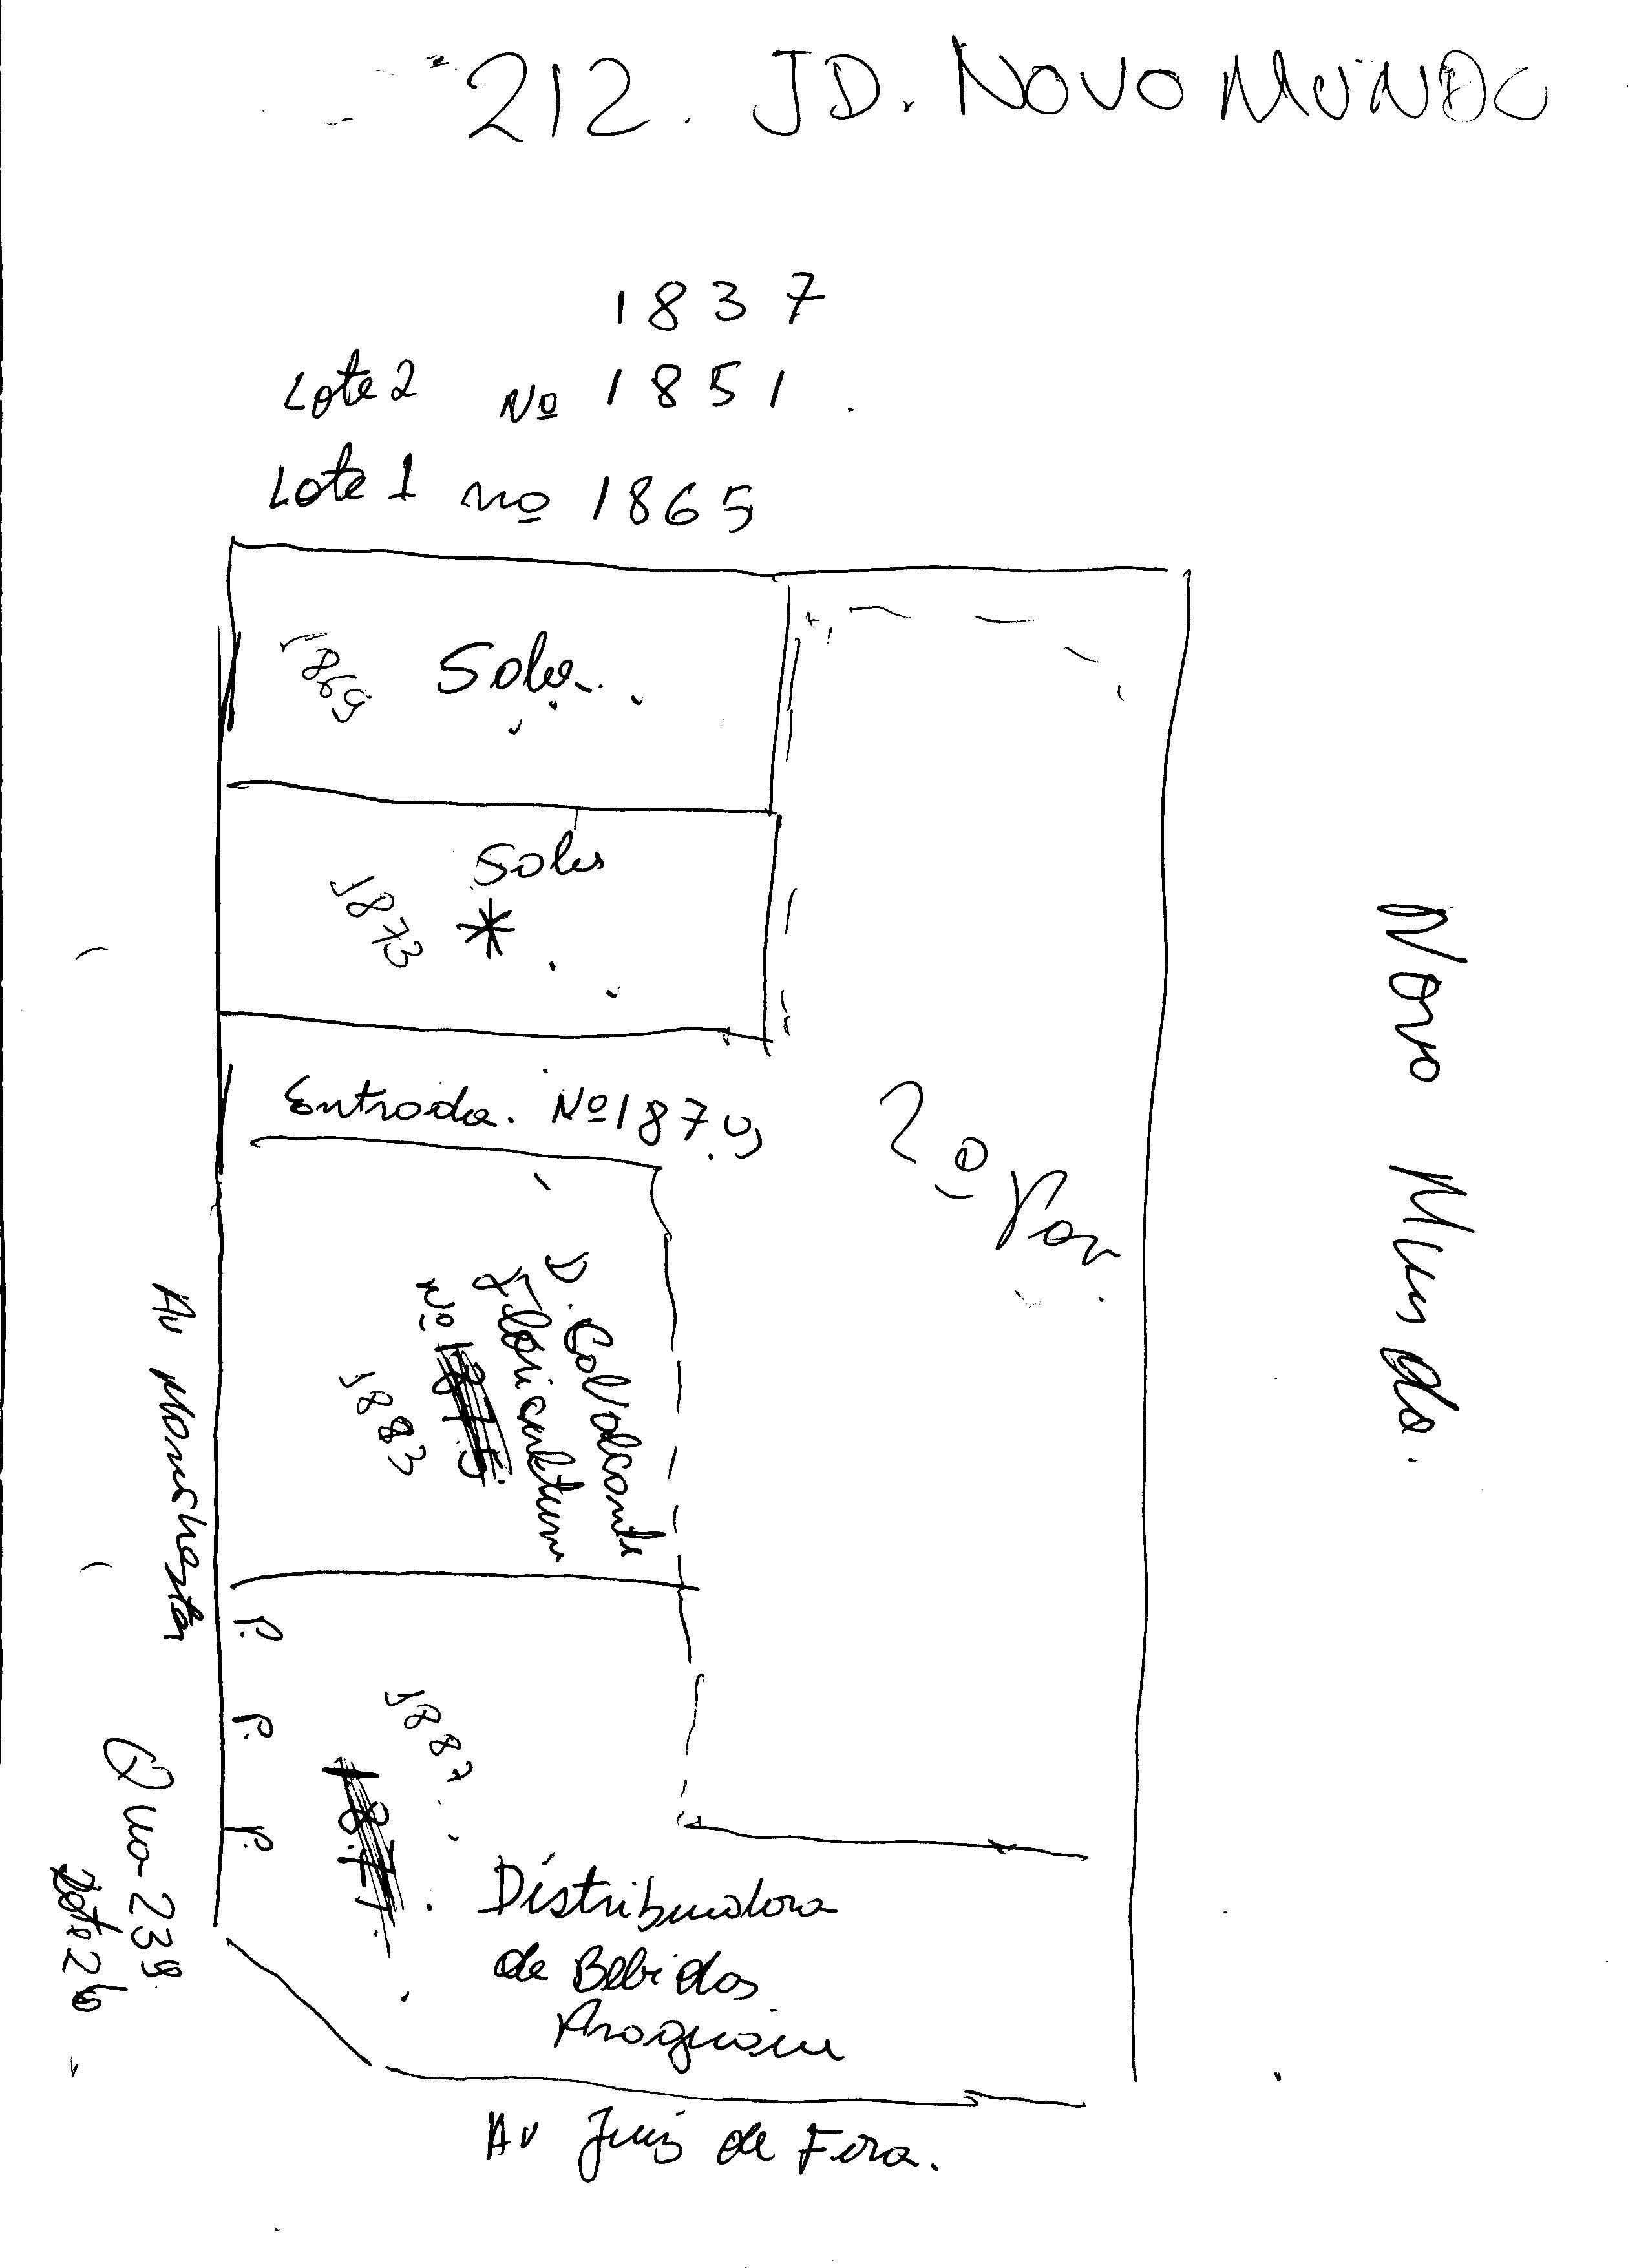 212. JD. NOVO MUNDO
1837
Lote 2 Nº 1851.
Lote 1 nº 1865
1869
Sala
Salas
1873
*
Entrada. Nº 187
2º Pav
Novo Mundo.
D. Cavalcante
Floricultura
Nº 1875
1883
Av Manchester
P.
P.
P.
1887
1877.
Qua 239
Lote 26
Distribuidora
de Bebidas
Araguaia
Av Juiz de Fora.